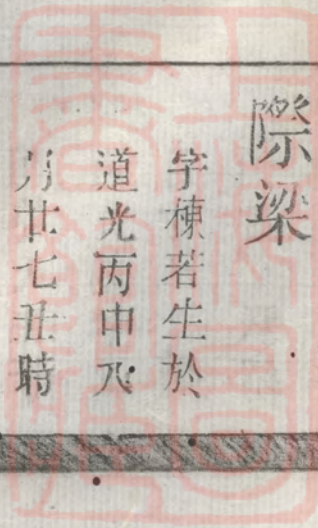 際梁
字棟若生於
道光丙申八
月廿七丑時